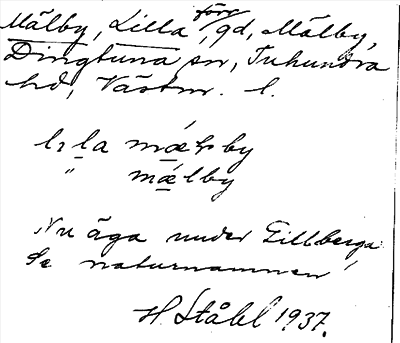 Mälby, Lilla, förr gd, Mälby,
Dingtuna sn, Tuhundra
hd, Västm. l.
lɪla mæls by
" mælby
Nu äga under Gillberga
Se naturnamnen
H. Ståhl 1937.